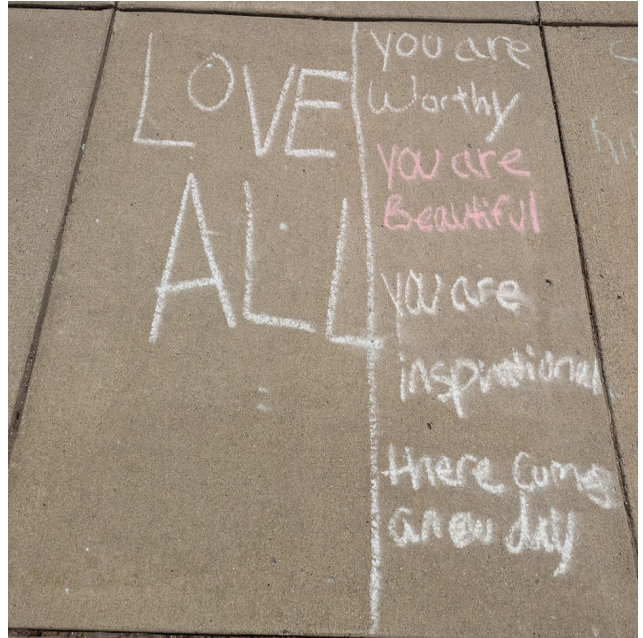 LOVE
ALL
you are
Worthy
you are
Beautiful
you are
inspirational
there come
a new day